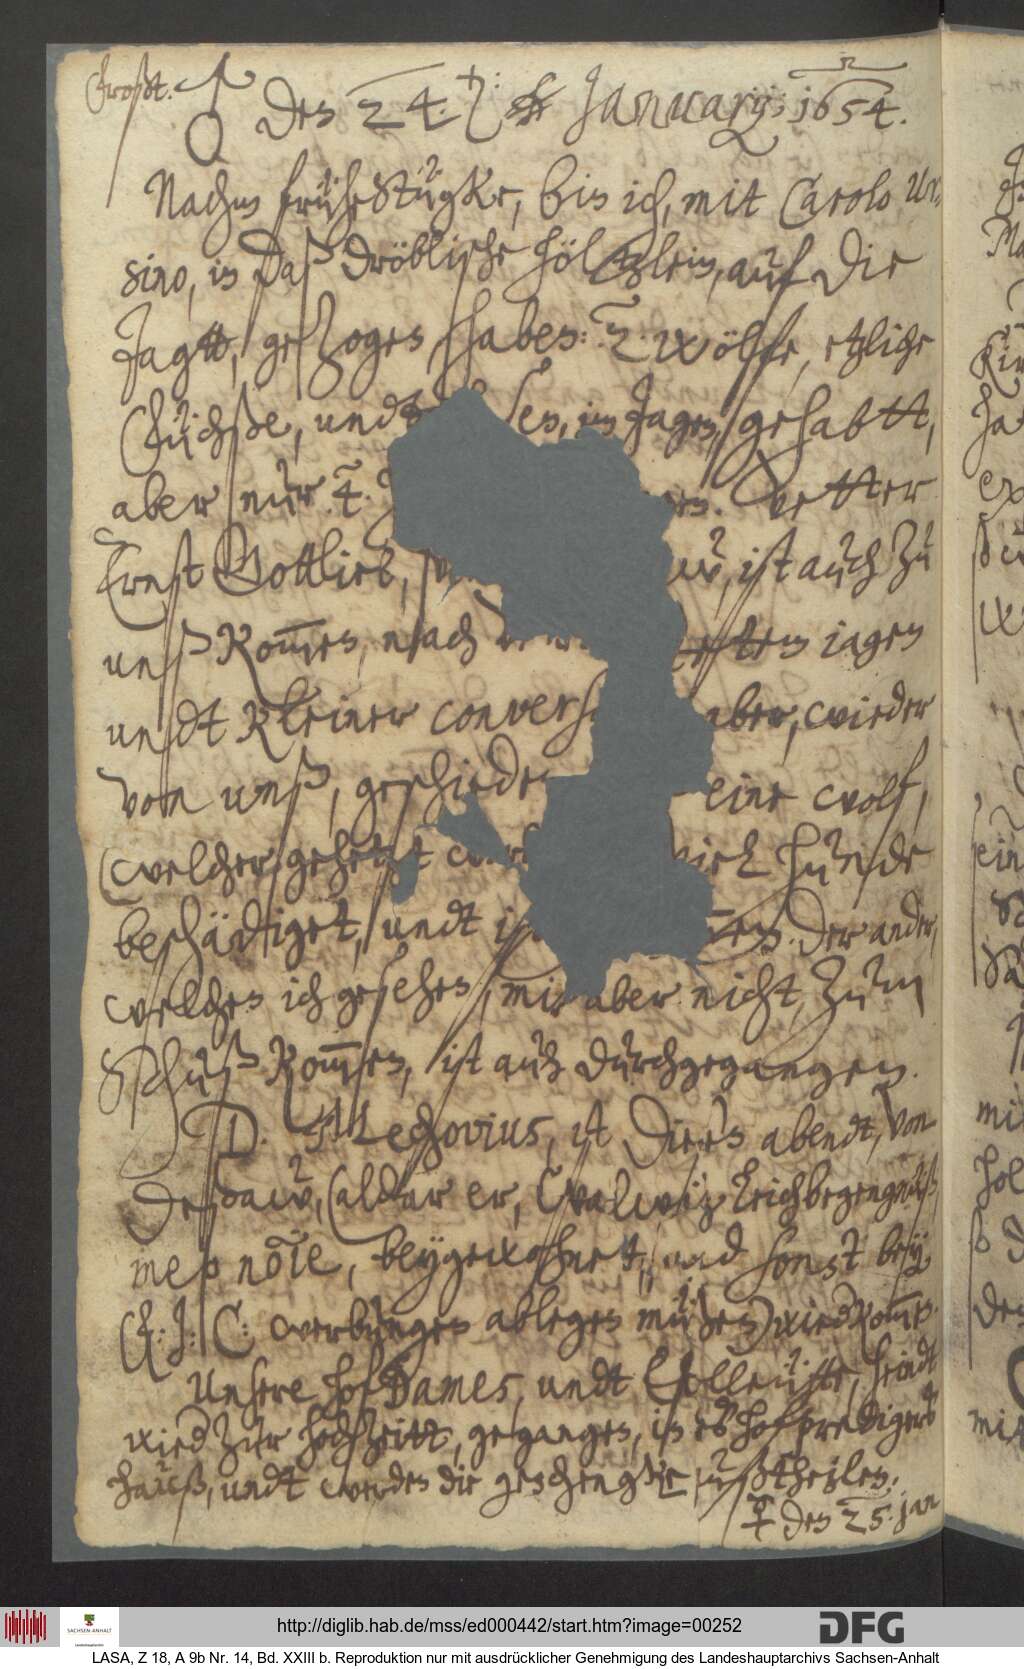 Frost.
den 24. Januarij: 1654.
Nachm frühestügke, bin ich, mit Carolo Ur¬
sino, in daß dröblische höltzlein, auf die
Jagtt, gezogen haben: 2. wölffe, etzliche
Füchße, undt sen, im Jagen, gehabtt,
aber nur 4. Vetter
Ernst Gottlieb, ist auch zu
unß kommen, nach jagen
undt kleiner convers aber, wieder
von unß, geschieden eine wolf,
welcher gehetzt viel hunde
beschädiget, undt der ander,
welchen ich gesehen, mir aber nicht, zum
Schuß kommen, ist auch durchgegangen.
D. Mechovius, ist diesen abendt, von
Deßaw, (aldar er, Walwitz leichbegengnüß
meo nomine, beygewohnet, und sonst bey
F. J. C. werbungen ablegen müßen) wied kommen.
Unsere hof Dames, undt Edelleütte, seindt
wied zur hochzeitt, gegangen, in es hofpredigers
hauß, undt werden die geschengke außtheilen.
♀ den 25. Jan
http://diglib.hab.de/mss/ed000442/start.htm?image=00252
SACHSEN-ANHALT
Landeshauptarchiv
DFG
LASA, Z 18, A 9b Nr. 14, Bd. XXIII b. Reproduktion nur mit ausdrücklicher Genehmigung des Landeshauptarchivs Sachsen-Anhalt